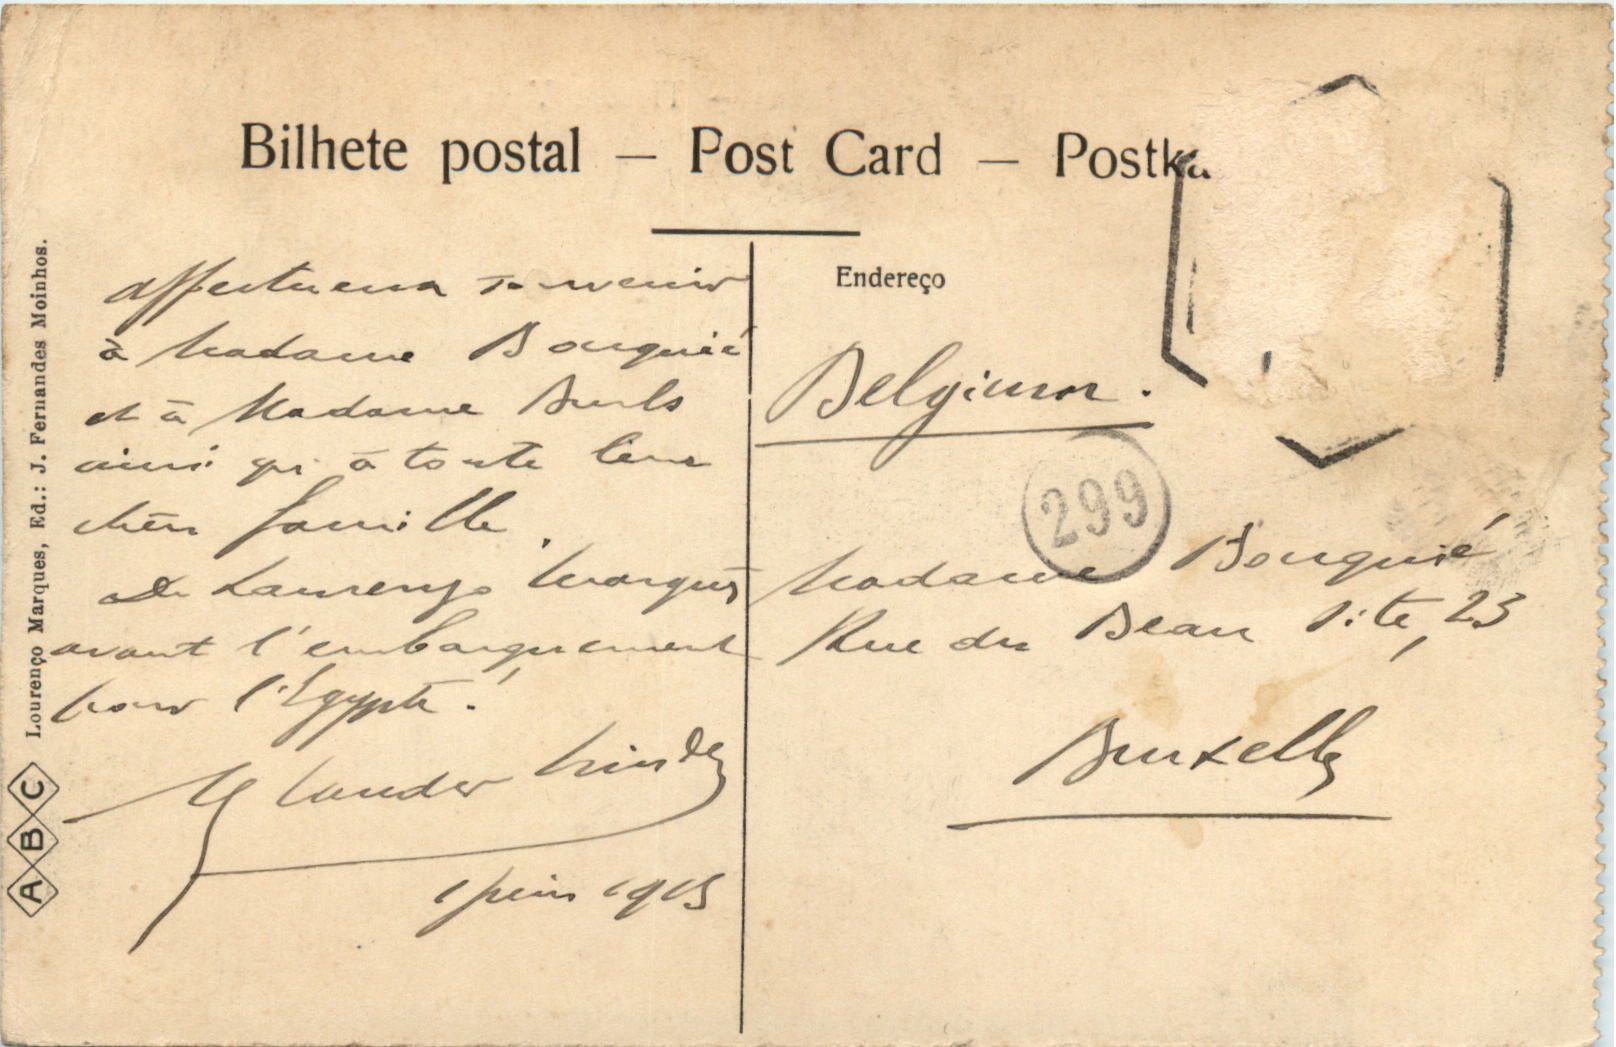 Bilhete postal — Post Card — Postka
Endereço
affectueux souvenir
à Madame Bouquié
et à Madame Buls
ainsi qu'à toute leur
chère famille.
De Laurenzo Marques
avant l'embarquement
pour l'Egypte!
1 juin 1913
Belgium.
299
Madame Bouquié
Rue du Beau Site, 23
Bruxelles
Lourenço Marques, Ed.: J. Fernandes Moinhos.
A B C